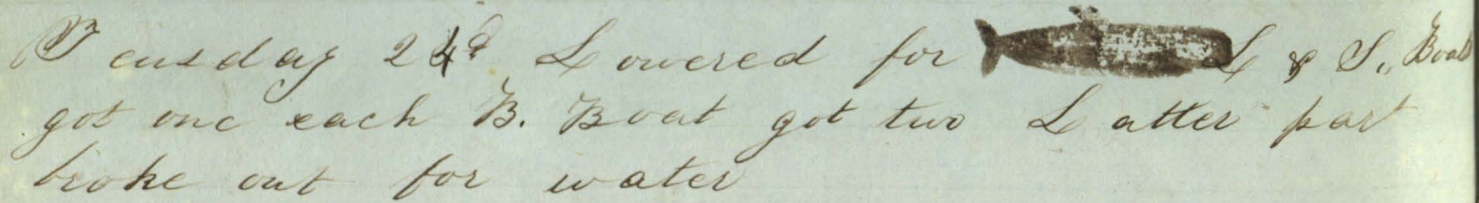 Teusday 24d Lowered for L & S,, Boats
got one each B. Boat got two Latter part
broke out for water